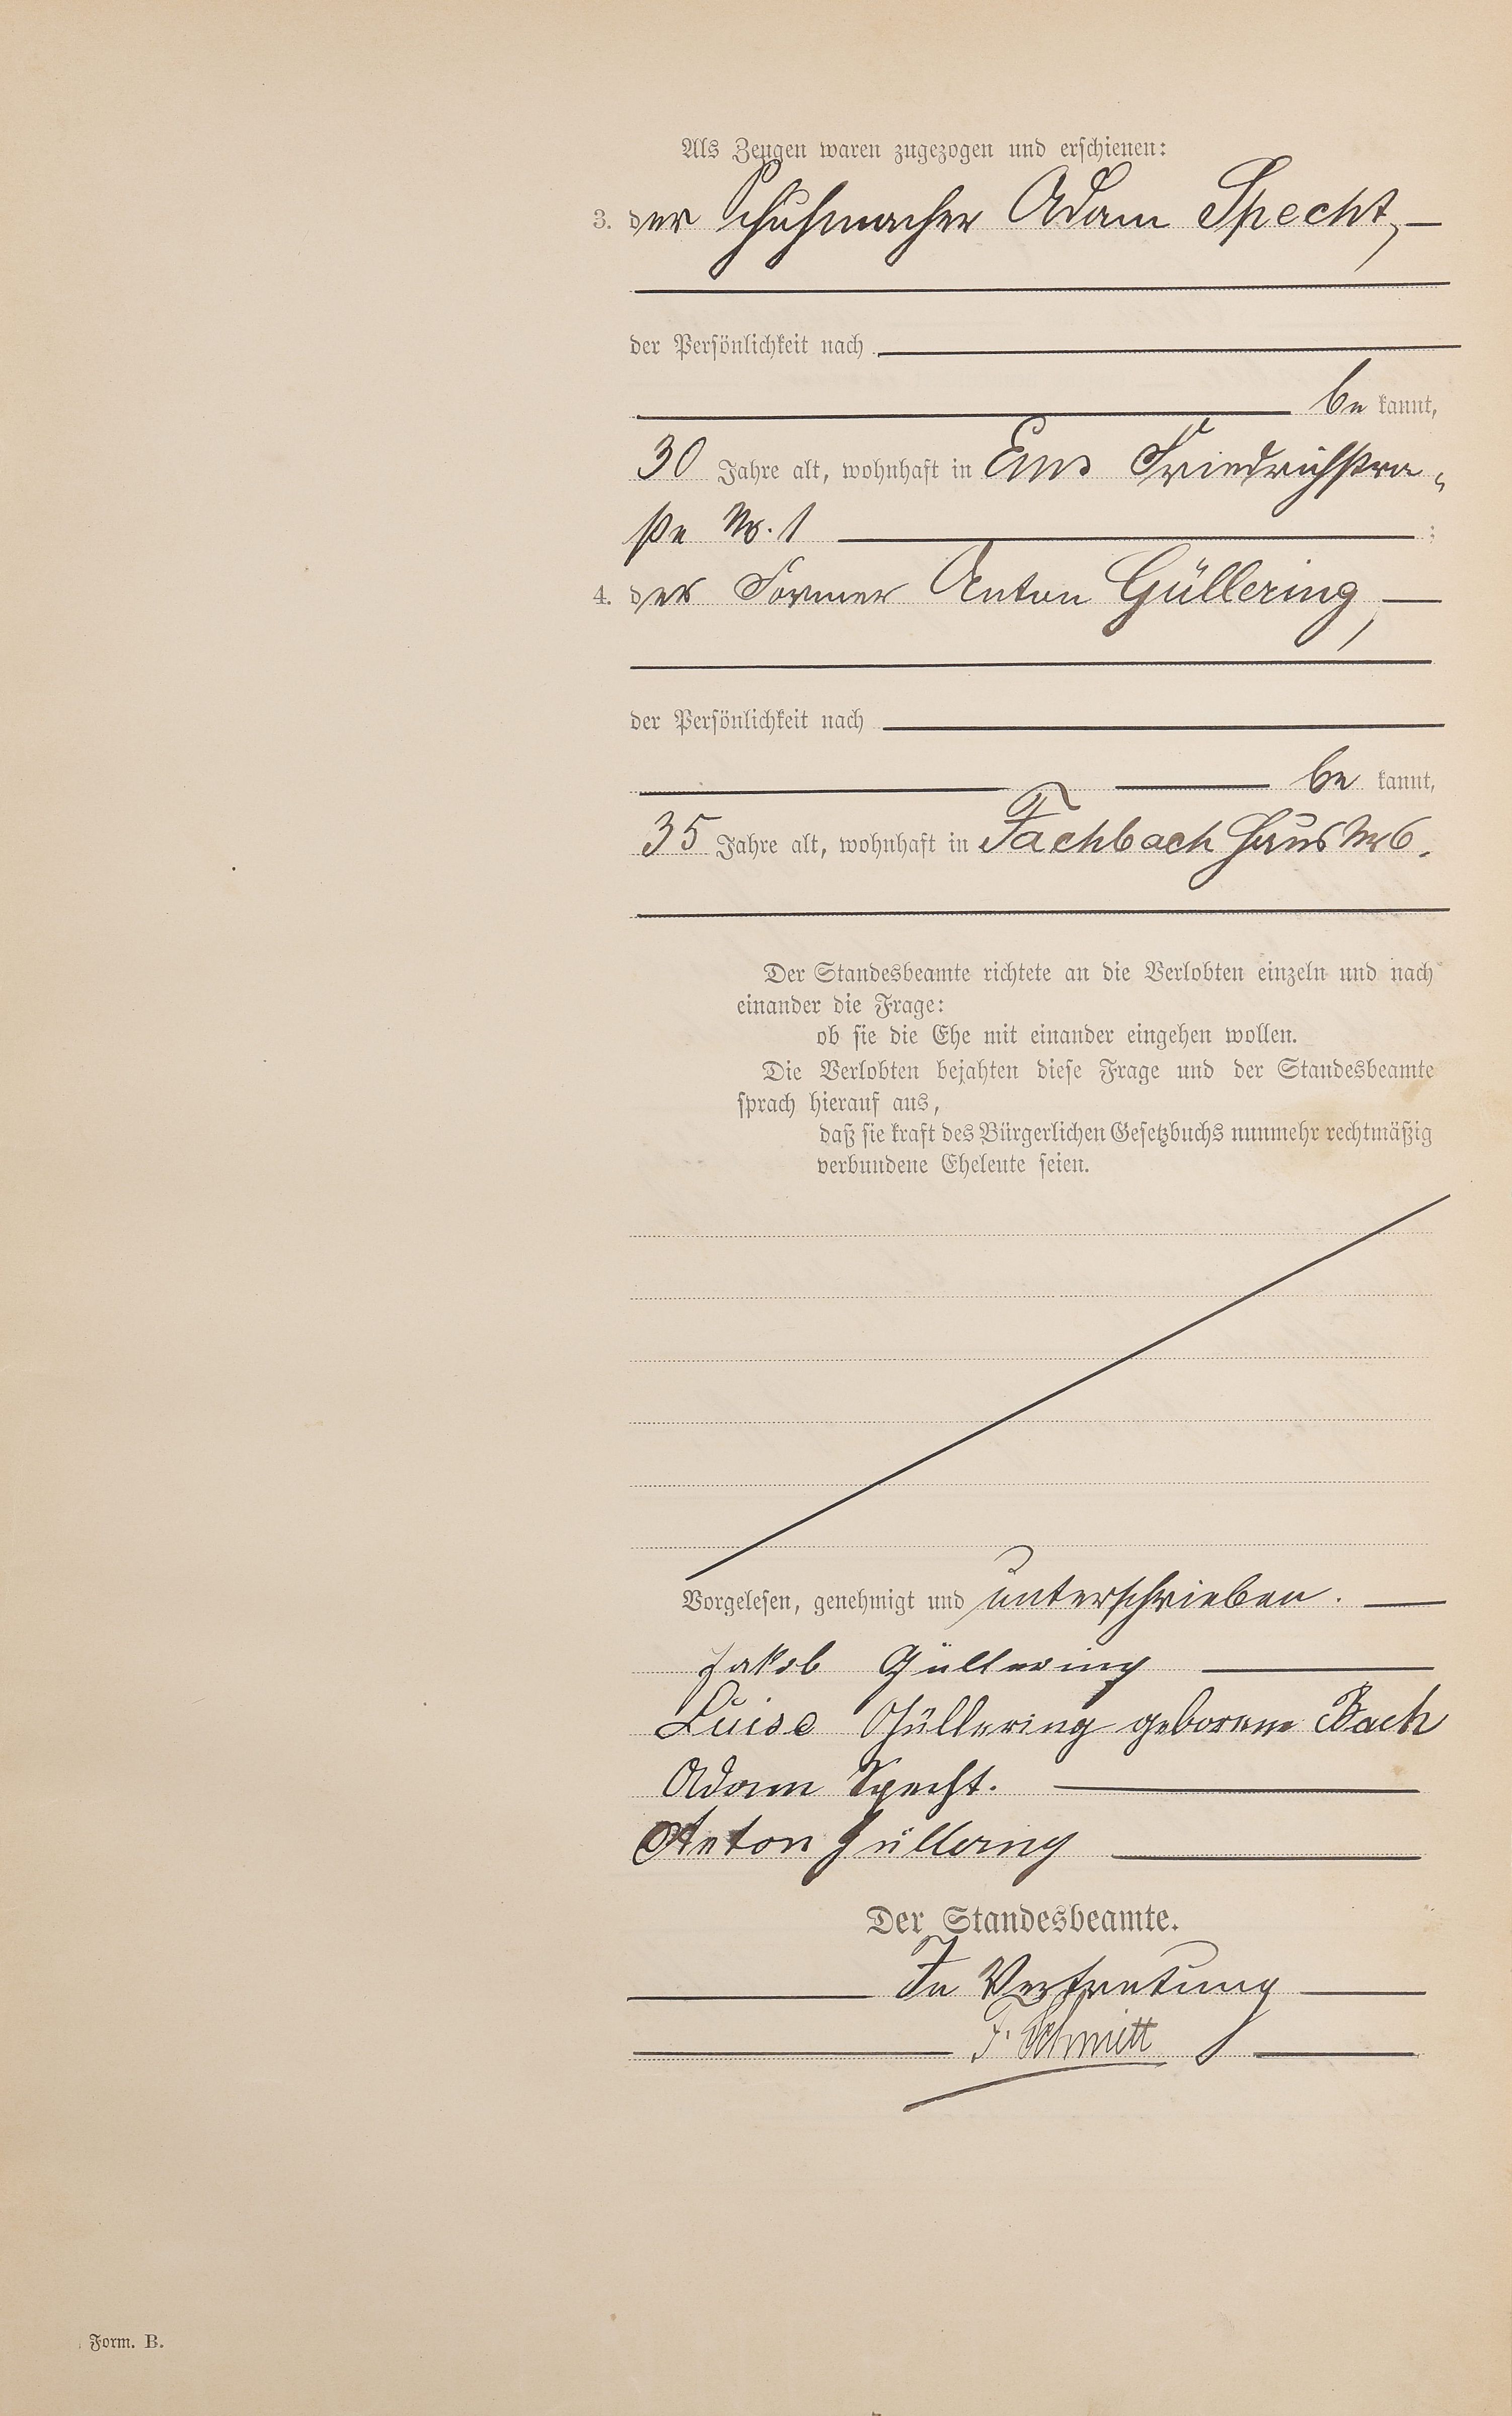 Als Zeugen waren zugezogen und erschienen:
3. der Schuhmacher Adam Specht, —
der Persönlichkeit nach
be kannt,
30 Jahre alt, wohnhaft in Ems Friedrichstra-
ße Nr. 1 ;
4. der Former Anton Güllering, —
der Persönlichkeit nach
be kannt,
35 Jahre alt, wohnhaft in Fachbach Haus Nr 6.
Der Standesbeamte richtete an die Verlobten einzeln und nach
einander die Frage:
ob sie die Ehe mit einander eingehen wollen.
Die Verlobten bejahten diese Frage und der Standesbeamte
sprach hierauf aus,
daß sie kraft des Bürgerlichen Gesetzbuchs nunmehr rechtmäßig
verbundene Eheleute seien.
Vorgelesen, genehmigt und unterschrieben. —
Jakob Güllering
Luise Güllering geborene Bach
Adam Specht.
Anton Güllering
Der Standesbeamte.
In Vertretung
F. Schmitt
Form. B.